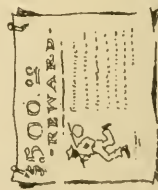 $500.00
REWARD.